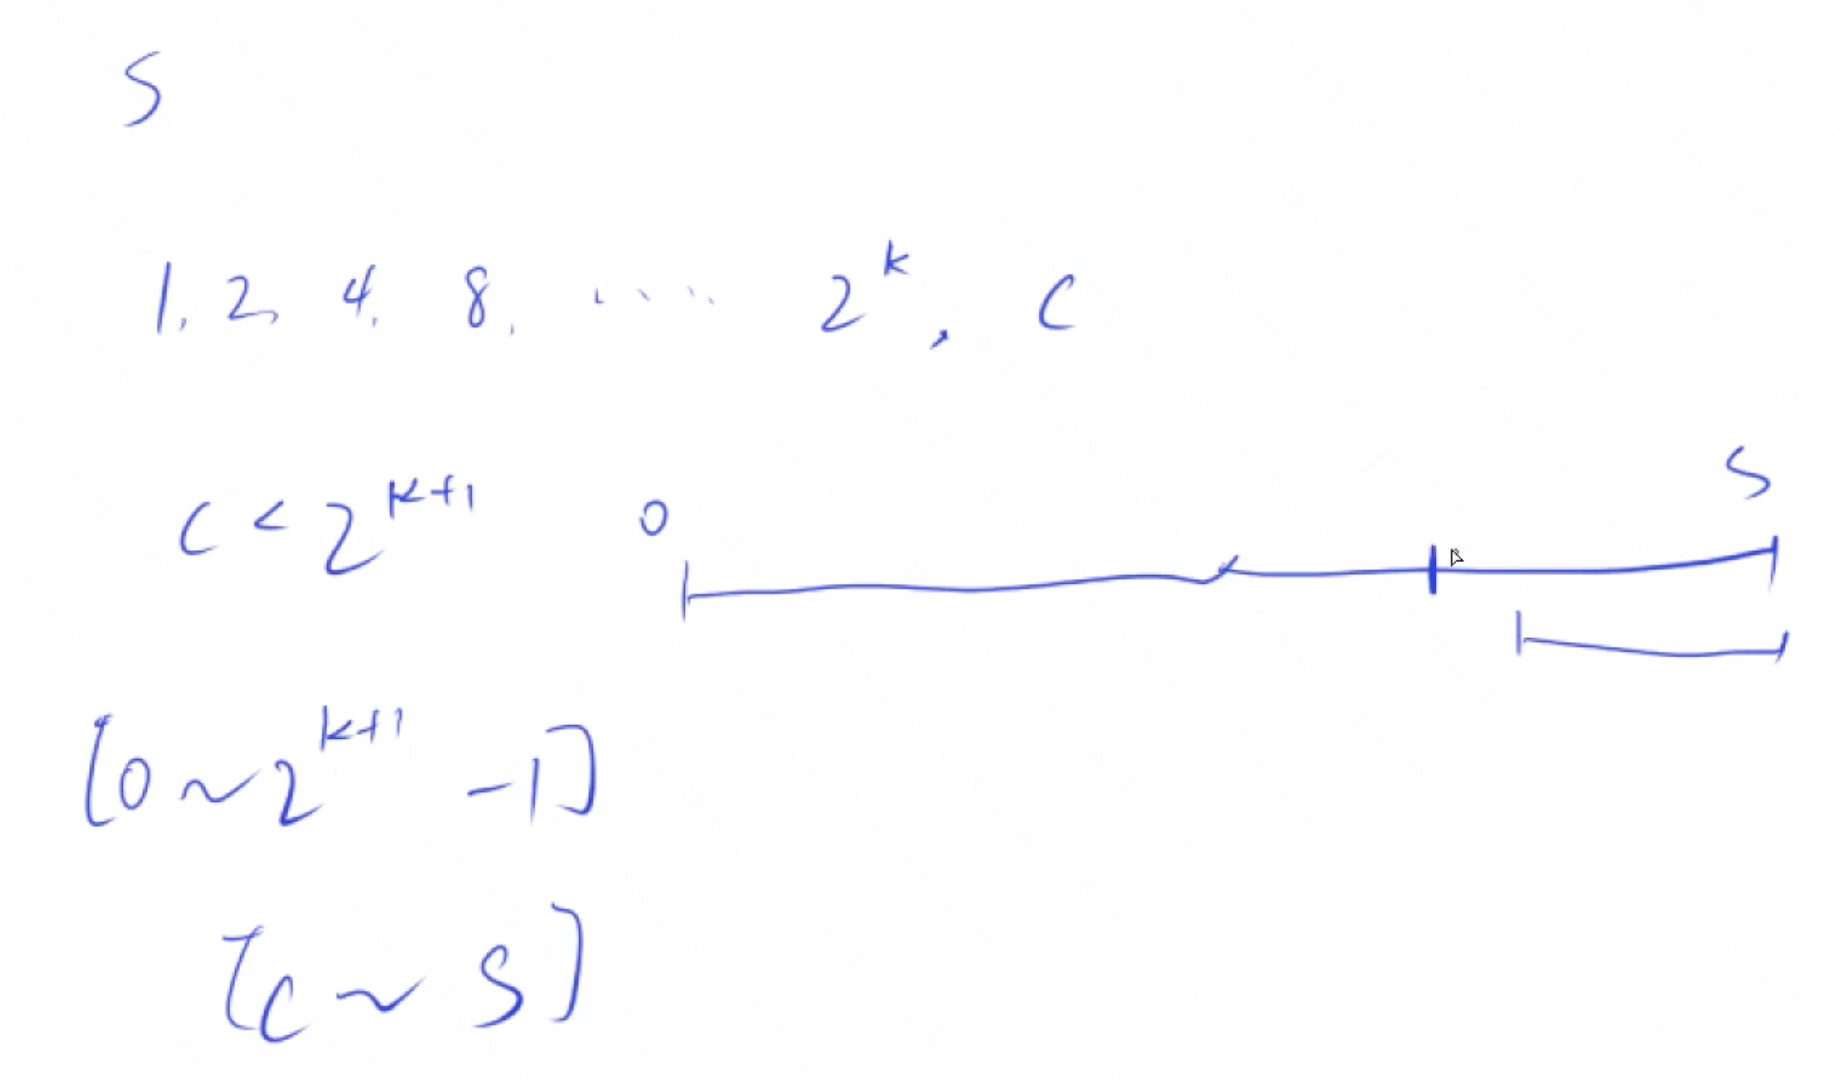 S
1, 2, 4, 8, ..... 2^k, C
C < 2^{k+1}
0
S
[0 ~ 2^{k+1} - 1]
[C ~ S]